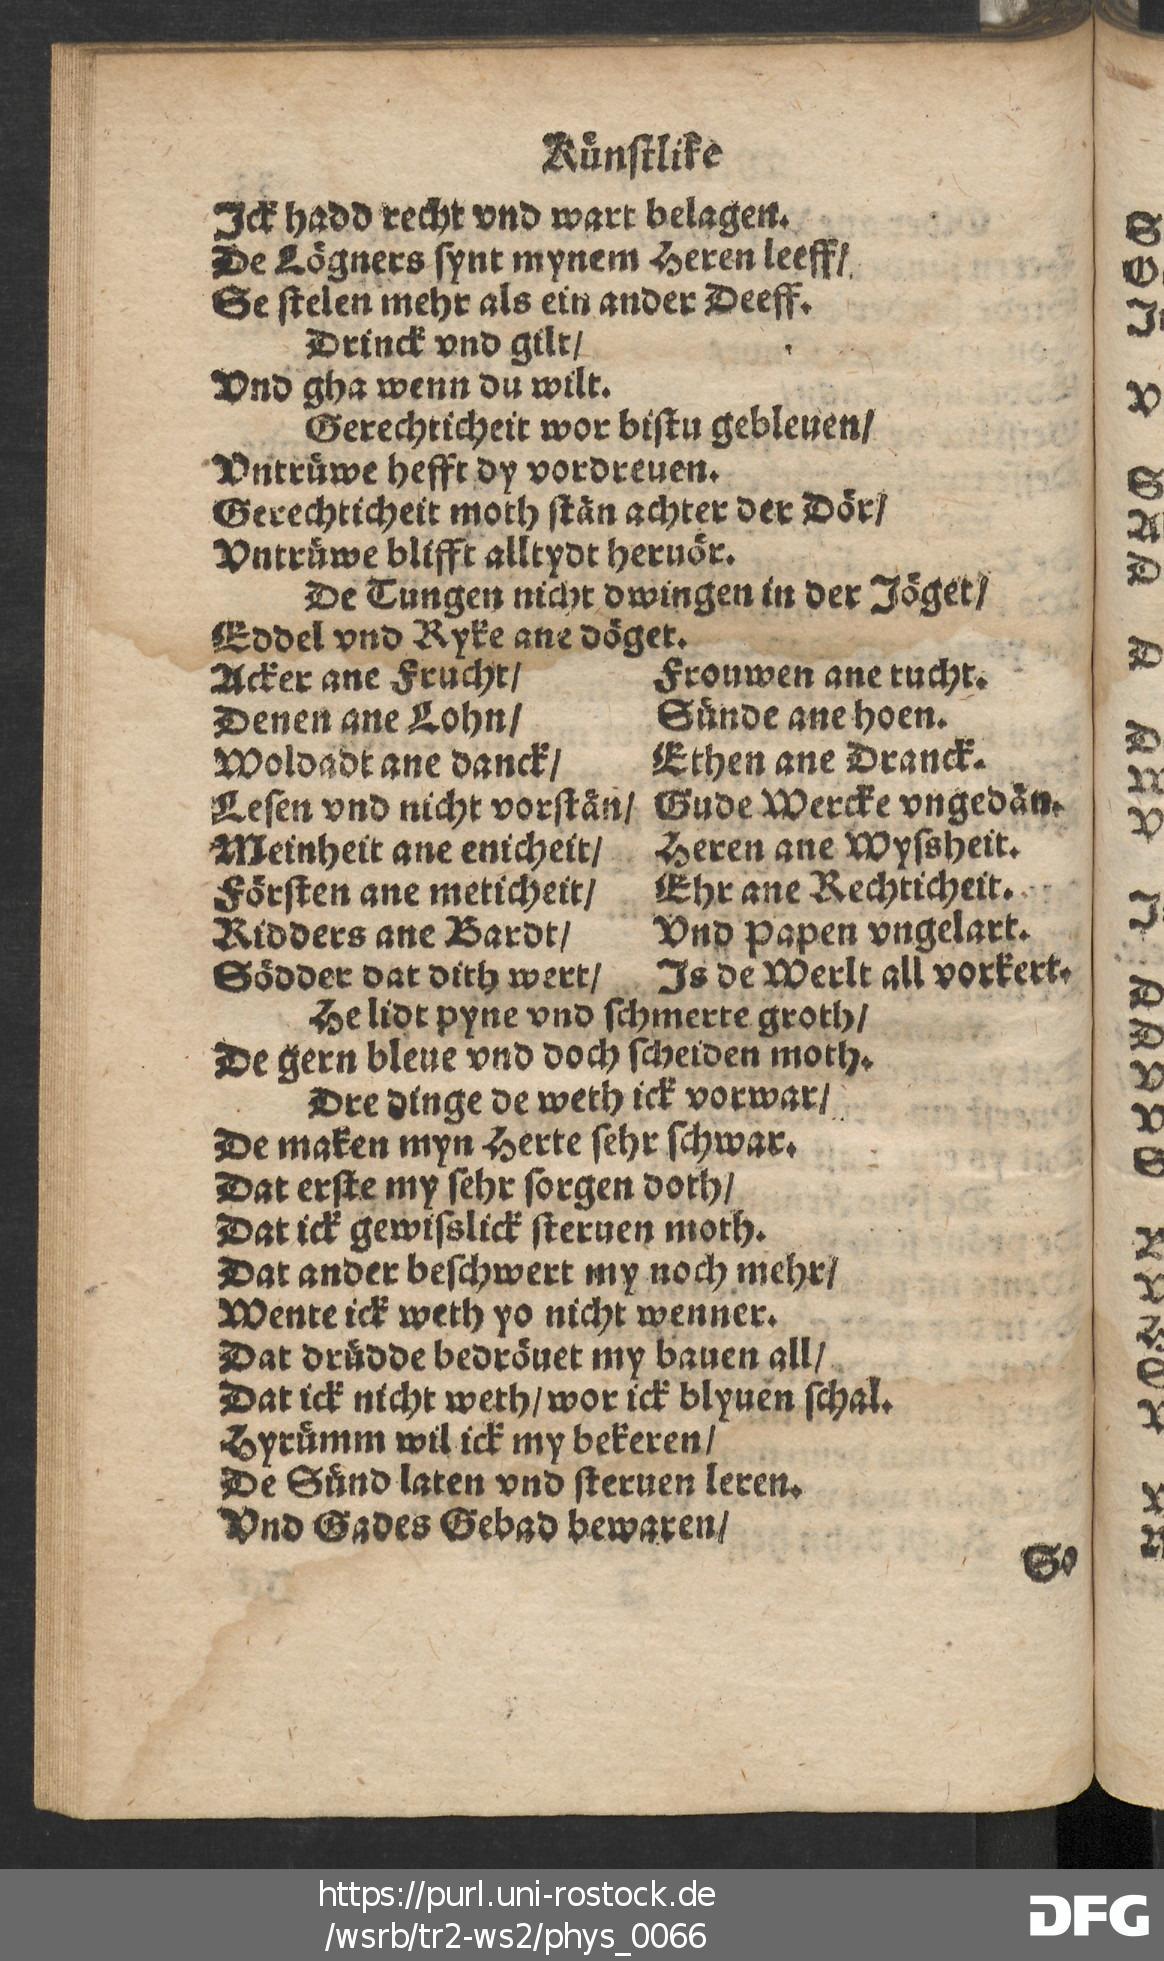 Künſtlike
Ick hadd recht vnd wart belagen.
De Lögners ſynt mynem Heren leeff/
Se ſtelen mehr als ein ander Deeff.
Drinck vnd gilt/
Vnd gha wenn du wilt.
Gerechticheit wor biſtu gebleuen/
Vntrüwe hefft dy vordreuen.
Gerechticheit moth ſtän achter der Dör/
Vntrüwe blifft alltydt heruör.
De Tungen nicht dwingen in der Jöget/
Eddel vnd Ryke ane döget.
Acker ane Frucht/ Frouwen ane tucht.
Denen ane Lohn/ Sünde ane hoen.
Woldadt ane danck/ Ethen ane Dranck.
Leſen vnd nicht vorſtän/ Gude Wercke vngedän.
Meinheit ane enicheit/ Heren ane Wyſsheit.
Förſten ane meticheit/ Ehr ane Rechticheit.
Ridders ane Bardt/ Vnd Papen vngelart.
Södder dat dith wert/ Is de Werlt all vorkert.
He lidt pyne vnd ſchmerte groth/
De gern bleue vnd doch ſcheiden moth.
Dre dinge de weth ick vorwar/
De maken myn Herte ſehr ſchwar.
Dat erſte my ſehr ſorgen doth/
Dat ick gewiſslick ſteruen moth.
Dat ander beſchwert my noch mehr/
Wente ick weth yo nicht wenner.
Dat drüdde bedröuet my bauen all/
Dat ick nicht weth/ wor ick blyuen ſchal.
Hyrümm wil ick my bekeren/
De Sünd laten vnd ſteruen leren.
Vnd Gades Gebad bewaren/
So
https://purl.uni-rostock.de
/wsrb/tr2-ws2/phys_0066
DFG